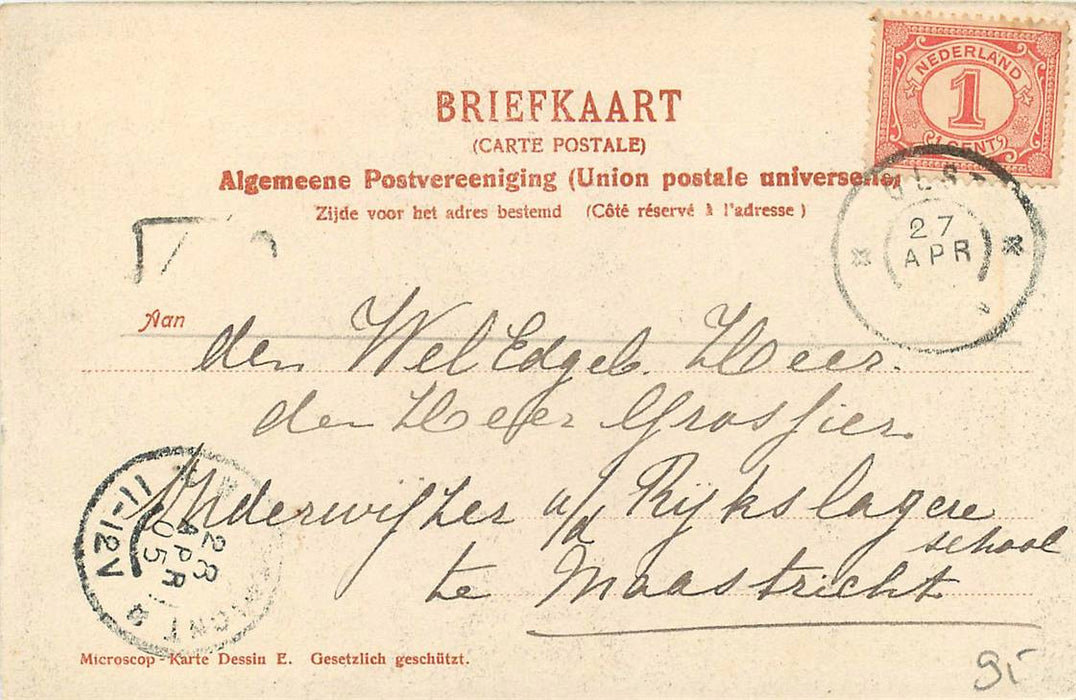 NEDERLAND
1
CENT
BRIEFKAART
(CARTE POSTALE)
Algemeene Postvereeniging (Union postale universelle)
Zijde voor het adres bestemd (Côté réservé à l'adresse)
27
APR
Aan
den WelEdgeb. Heer.
den Heer Grosjier.
Onderwijzer a/d Rijks lagere
school
te Maastricht
11-12V
28
APR
05
Microscop-Karte Dessin E. Gesetzlich geschützt.
95